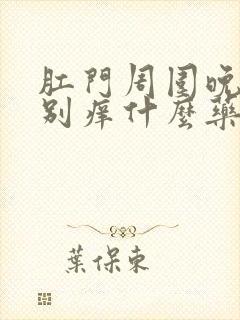 肛門周圍晚
別痒什麼藥
葉保東